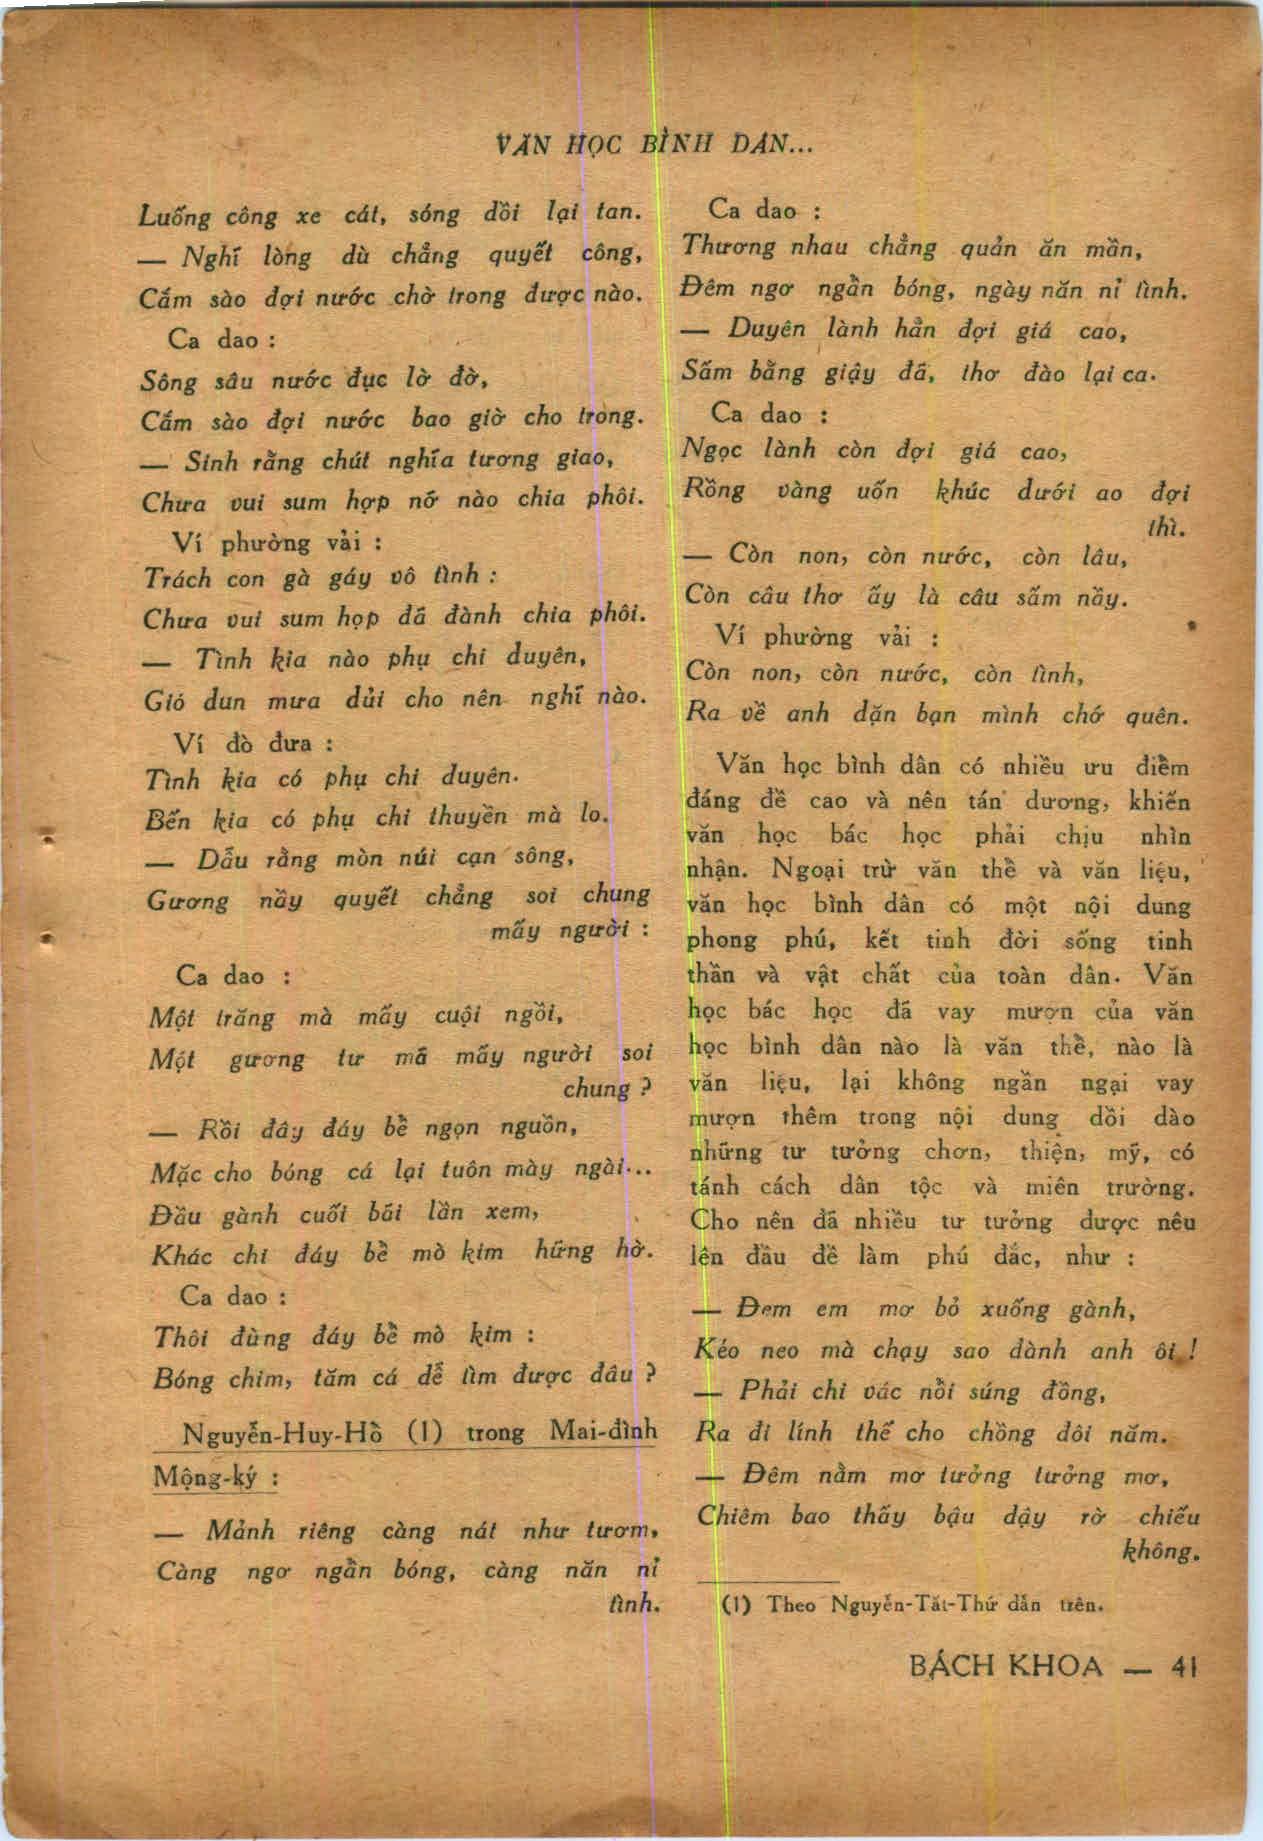 VĂN HỌC BÌNH DÂN...
Luống công xe cát, sóng dồi lại tan.
— Nghĩ lòng dù chẳng quyết công,
Cắm sào đợi nước chờ trong được nào.
Ca dao :
Sông sâu nước đục lờ đờ,
Cắm sào đợi nước bao giờ cho trong.
— Sinh rằng chút nghĩa tương giao,
Chưa vui sum hợp nỡ nào chia phôi.
Ví phường vải :
Trách con gà gáy vô tình :
Chưa vui sum họp đã đành chia phôi.
— Tình kia nào phụ chi duyên,
Gió dun mưa dủi cho nên nghĩ nào.
Ví đò đưa :
Tình kia có phụ chi duyên.
Bến kia có phụ chi thuyền mà lo.
— Dẫu rằng mòn núi cạn sông,
Gương nầy quyết chẳng soi chung
mấy người :
Ca dao :
Một trăng mà mấy cuội ngồi,
Một gương tư mã mấy người soi
chung ?
— Rồi đây đáy bể ngọn nguồn,
Mặc cho bóng cá lại tuôn mày ngài...
Đầu gành cuối bãi lần xem,
Khác chi đáy bể mò kim hững hờ.
Ca dao :
Thôi đừng đáy bể mò kim :
Bóng chim, tăm cá dễ tìm được đâu ?
Nguyễn-Huy-Hồ (1) trong Mai-đình
Mộng-ký :
— Mảnh riêng càng nát như tươm,
Càng ngơ ngẩn bóng, càng năn nỉ
tình.
Ca dao :
Thương nhau chẳng quản ăn mần,
Đêm ngơ ngẩn bóng, ngày năn nỉ tình.
— Duyên lành hẳn đợi giá cao,
Sấm bằng giậy đã, thơ đào lại ca.
Ca dao :
Ngọc lành còn đợi giá cao,
Rồng vàng uốn khúc dưới ao đợi
thì.
— Còn non, còn nước, còn lâu,
Còn câu thơ ấy là câu sấm nầy.
Ví phường vải :
Còn non, còn nước, còn tình,
Ra về anh dặn bạn mình chớ quên.
Văn học bình dân có nhiều ưu điểm
đáng đề cao và nên tán dương, khiến
văn học bác học phải chịu nhìn
nhận. Ngoại trừ văn thể và văn liệu,
văn học bình dân có một nội dung
phong phú, kết tinh đời sống tinh
thần và vật chất của toàn dân. Văn
học bác học đã vay mượn của văn
học bình dân nào là văn thể, nào là
văn liệu, lại không ngần ngại vay
mượn thêm trong nội dung dồi dào
những tư tưởng chơn, thiện, mỹ, có
tánh cách dân tộc và miên trường.
Cho nên đã nhiều tư tưởng được nêu
lên đầu đề làm phú đắc, như :
— Đem em mơ bỏ xuống gành,
Kéo neo mà chạy sao dành anh ôi !
— Phải chi vác nồi súng đồng,
Ra đi lính thế cho chồng đôi năm.
— Đêm nằm mơ tưởng tưởng mơ,
Chiêm bao thấy bậu dậy rờ chiếu
không.
(1) Theo Nguyễn-Tất-Thứ dẫn trên.
BÁCH KHOA — 41